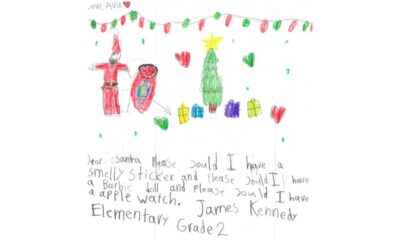 Love Ava
Dear Santa Please Could I have a
smelly sticker and Please Could I have
a Barbie doll and please could I have
a apple watch. James Kennedy
Elementary Grade 2